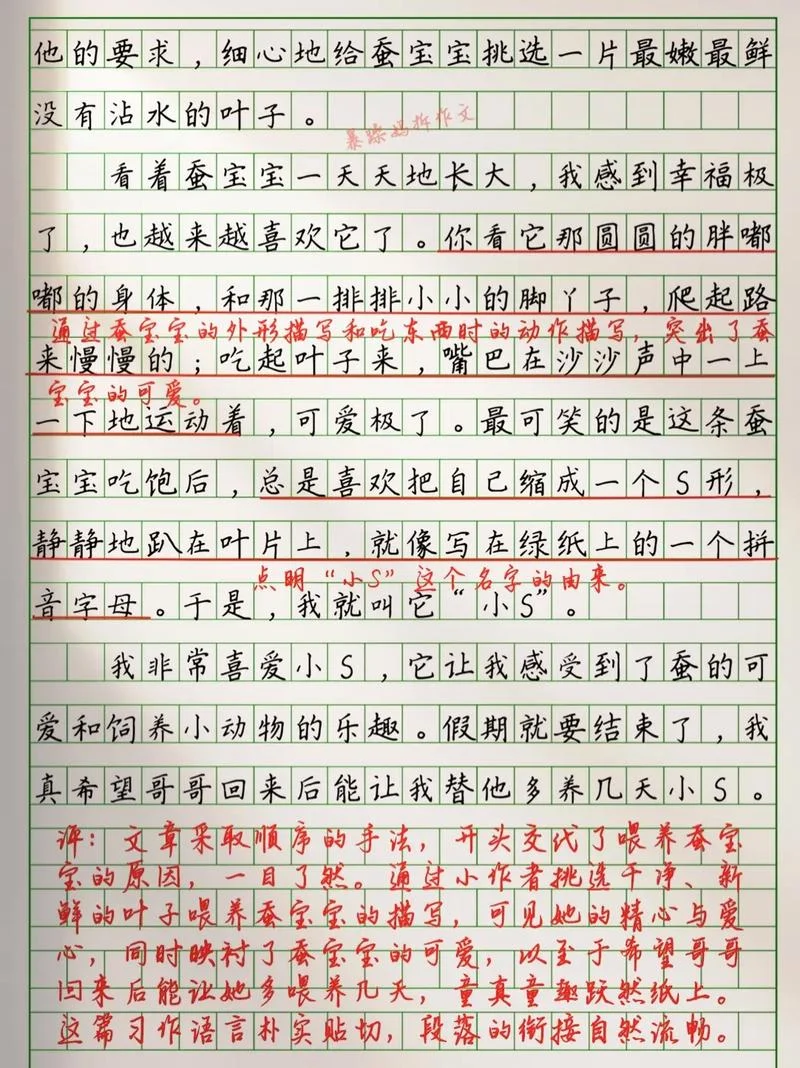 他的要求，细心地给蚕宝宝挑选一片最嫩最鲜
没有沾水的叶子。
暴躁妈拆作文
看着蚕宝宝一天天地长大，我感到幸福极
了，也越来越喜欢它了。你看它那圆圆的胖嘟
嘟的身体，和那一排排小小的脚丫子，爬起路
通过蚕宝宝的外形描写和吃东西时的动作描写，突出了蚕
来慢慢的；吃起叶子来，嘴巴在沙沙声中一上
宝宝的可爱。
一下地运动着，可爱极了。最可笑的是这条蚕
宝宝吃饱后，总是喜欢把自己缩成一个S形，
静静地趴在叶片上，就像写在绿纸上的一个拼
点明“小S”这个名字的由来。
音字母。于是，我就叫它“小S”。
我非常喜爱小S，它让我感受到了蚕的可
爱和饲养小动物的乐趣。假期就要结束了，我
真希望哥哥回来后能让我替他多养几天小S。
评：文章采取顺序的手法，开头交代了喂养蚕宝
宝的原因，一目了然。通过小作者挑选干净、新
鲜的叶子喂养蚕宝宝的描写，可见她的精心与爱
心，同时映衬了蚕宝宝的可爱，以至于希望哥哥
回来后能让她多喂养几天，童真童趣跃然纸上。
这篇习作语言朴实贴切，段落的衔接自然流畅。